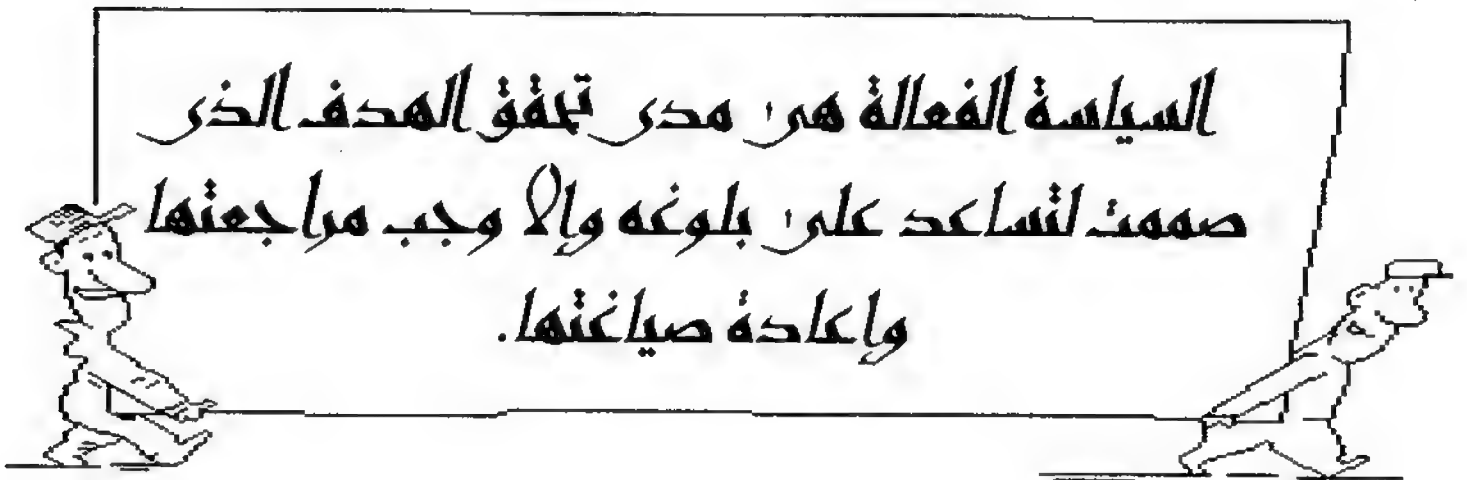 السياسة الفعالة هى مدى تحقق الهدف الذى
صممت لتساعد على بلوغه وإلا وجب مراجعتها
وإعادة صياغتها.